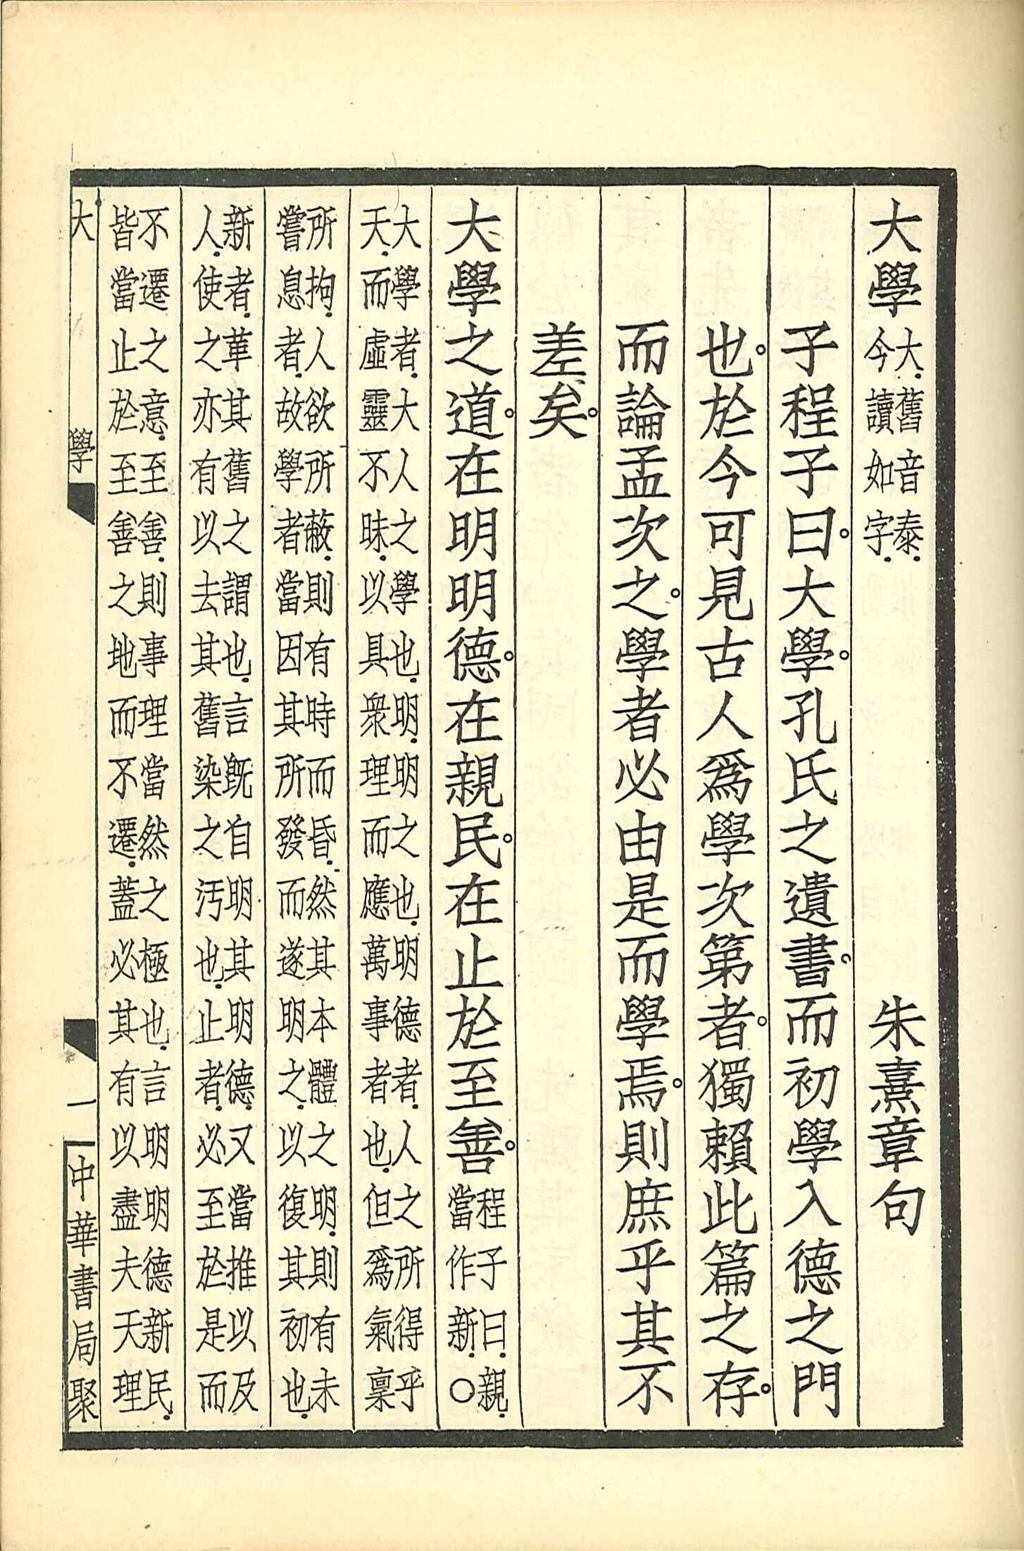 大學大舊音泰今讀如字 朱熹章句
子程子曰大學孔氏之遺書而初學入德之門
也於今可見古人爲學次第者獨賴此篇之存
而論孟次之學者必由是而學焉則庶乎其不
差矣
大學之道在明明德在親民在止於至善程子曰親當作新○
大學者大人之學也明明之也明德者人之所得乎
天而虛靈不昧以具衆理而應萬事者也但爲氣稟
所拘人欲所蔽則有時而昏然其本體之明則有未
嘗息者故學者當因其所發而遂明之以復其初也
新者革其舊之謂也言旣自明其明德又當推以及
人使之亦有以去其舊染之汚也止者必至於是而
不遷之意至善則事理當然之極也言明明德新民
皆當止於至善之地而不遷蓋必其有以盡夫天理
大學 一 中華書局聚